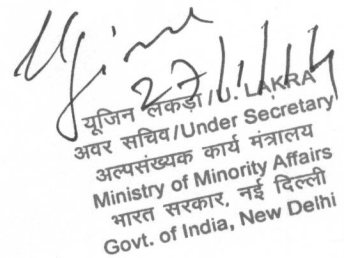 Ujine
27/1/14
यूजिन लकड़ा/U. LAKRA
अवर सचिव/Under Secretary
अल्पसंख्यक कार्य मंत्रालय
Ministry of Minority Affairs
भारत सरकार, नई दिल्ली
Govt. of India, New Delhi